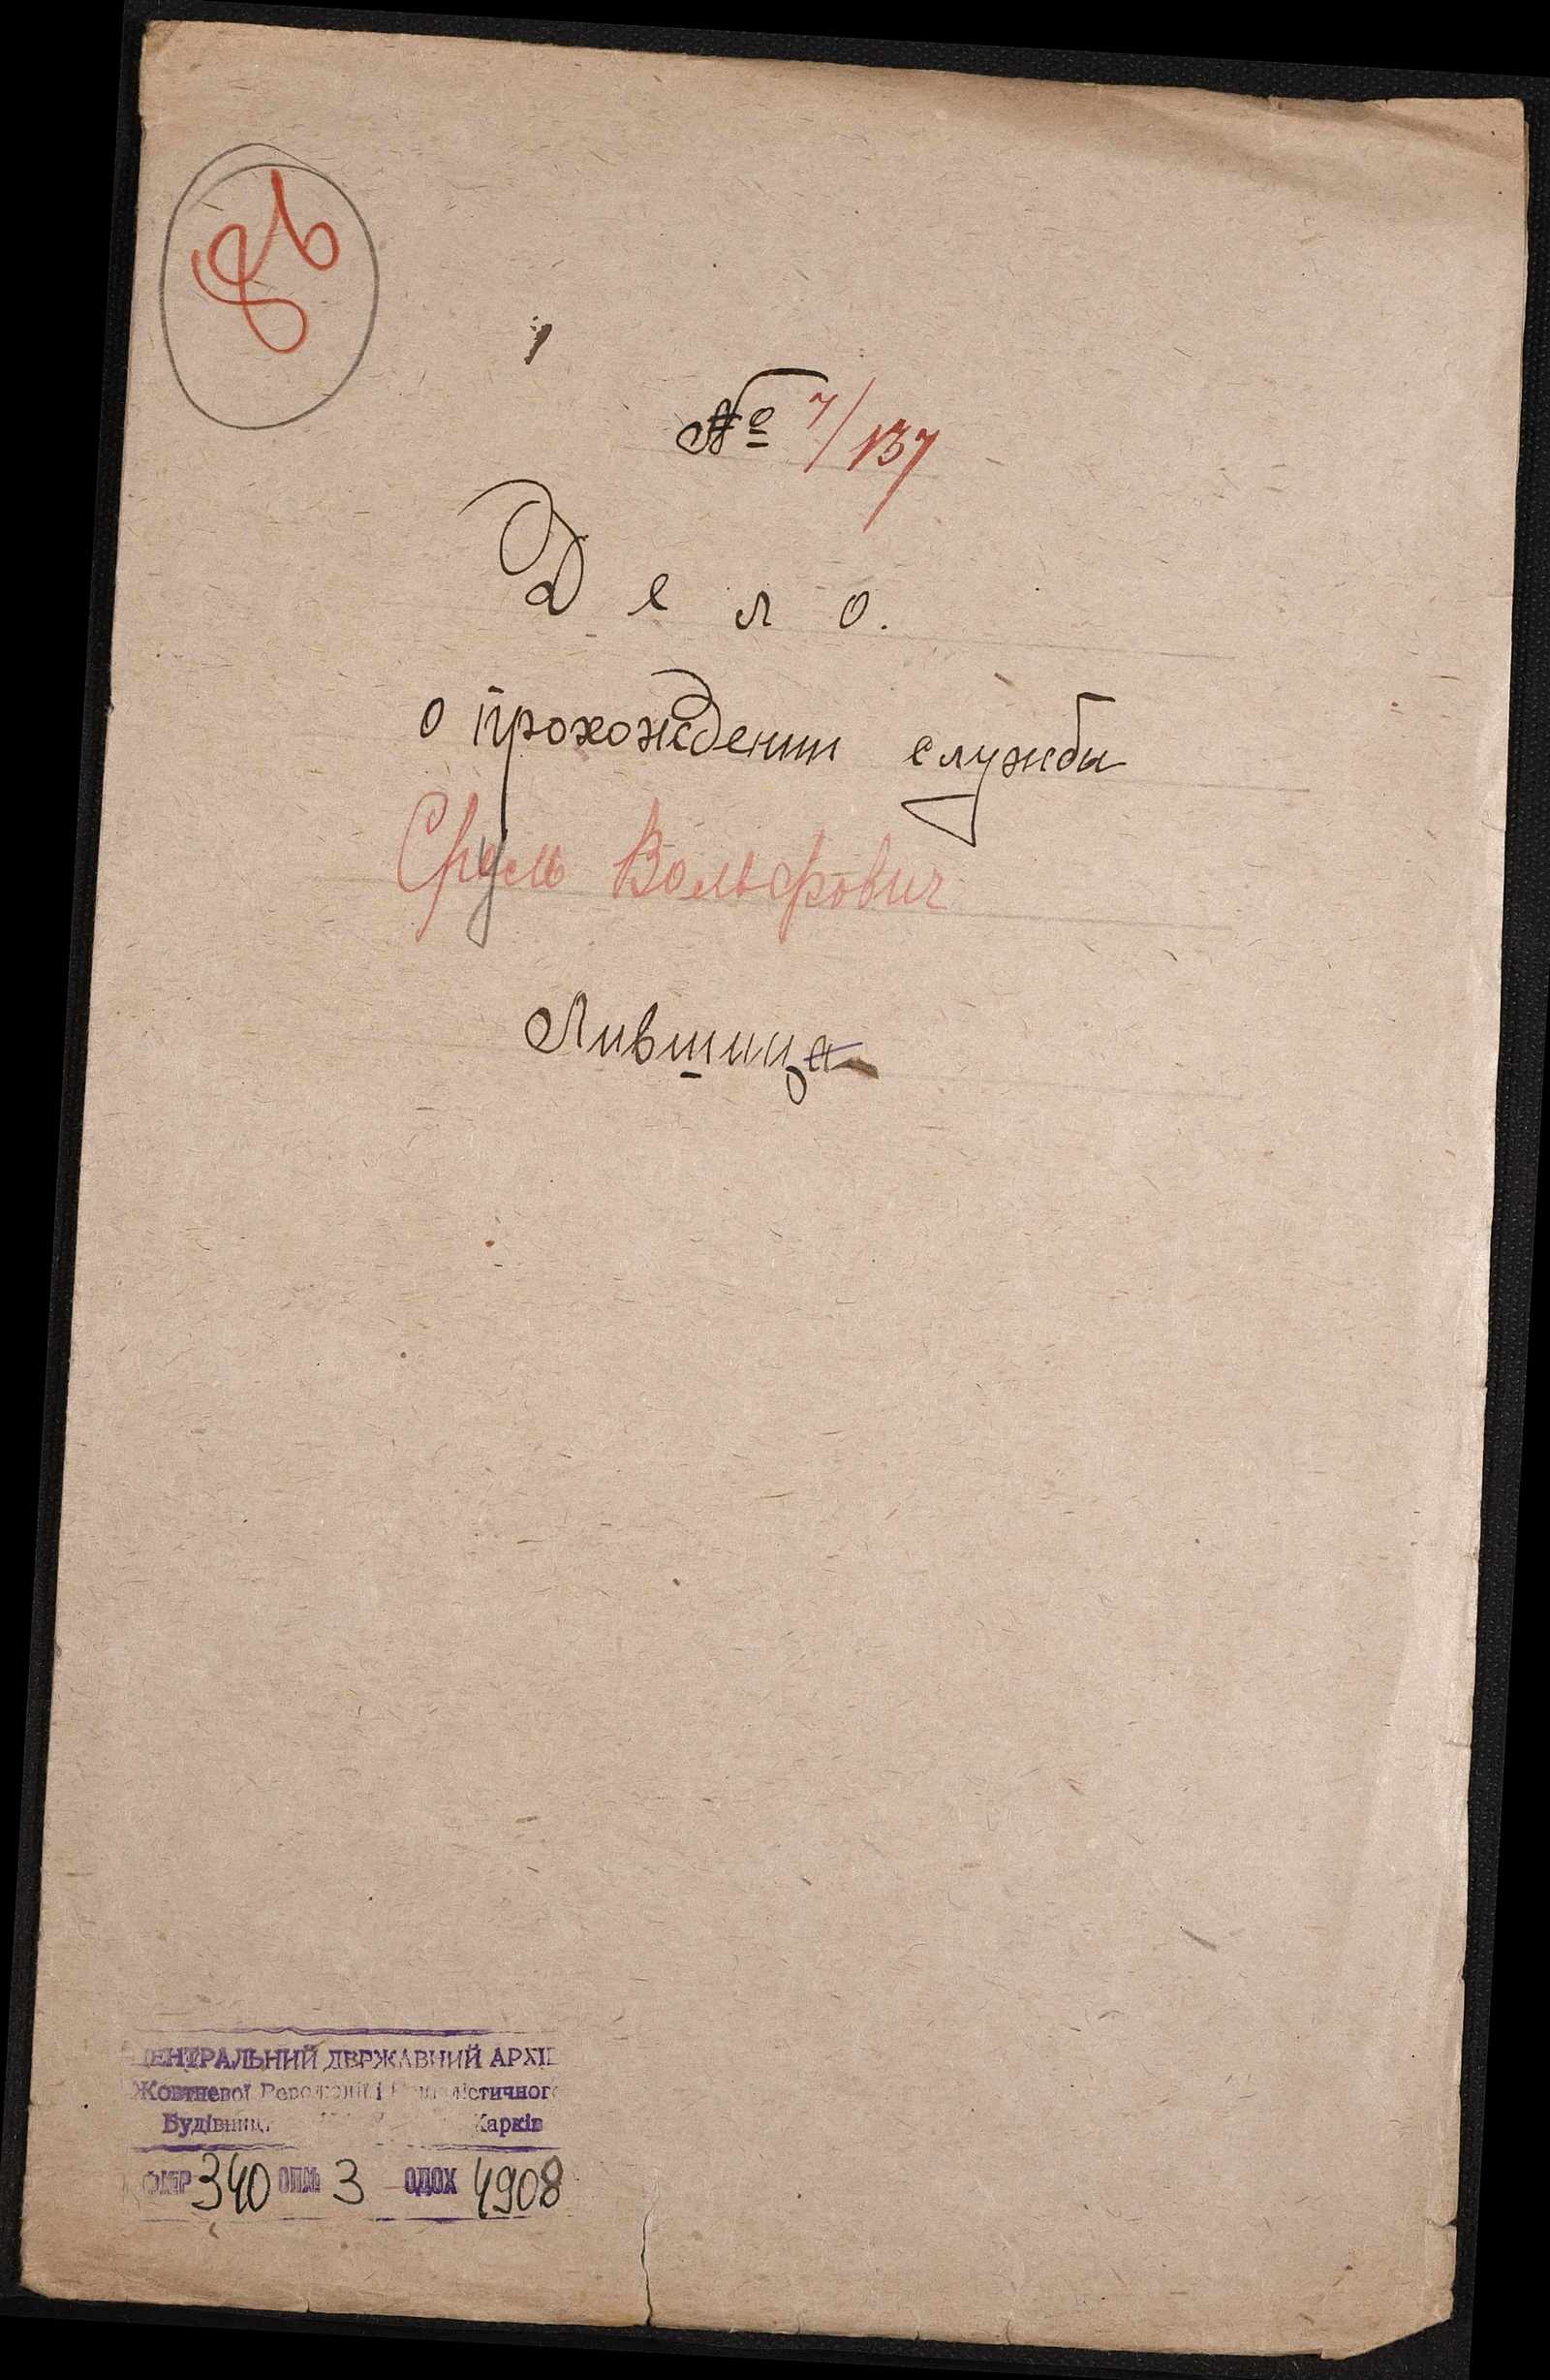 86
№ 7/137
Дело.
о прохождении службы
Сруль Вольфович
Лившица
ЦЕНТРАЛЬНИЙ ДЕРЖАВНИЙ АРХІВ
Жовтневої Революції і Соціалістичного
Будівниц. Харків
Ф№Р 340 ОП№ 3 ОДОХ 4908